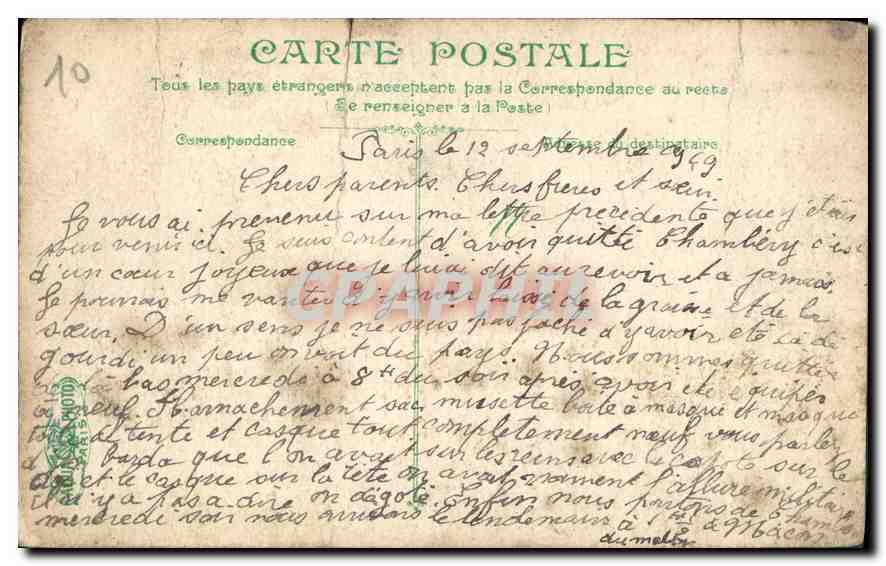 10
CARTE POSTALE
Tous les pays étrangers n'acceptent pas la Correspondance au recto
(Se renseigner à la Poste)
Correspondance
Adresse du destinataire
Paris le 12 septembre 1949
Chers parents. Chers freres et sœur
Je vous ai prevenu sur ma lettre precedente que j'étais
pour venir ici. Je suis content d'avoir quitté Chambéry c'est
d'un cœur joyeux que je lui ai dit au revoir et a jamais.
Je pourrais me vanter d'y avoir laissé de la graisse et de la
sœur. D'un sens je ne suis pas faché d'y avoir été ca dé
gourdi un peu on voit du pays. Nous sommes
bas mercredi à 8H du soir après avoir été équipés
à neuf. Harnachement sac musette boite à masque et masque
toile de tente et casque tout completement neuf vous parlez
barda que l'on avait sur les reins avec capote sur le
dos et le casque sur la tête on avait vraiment l'allure militaire
il n'y a pas a dire on dégote. Enfin nous partons de Chambéry
mercredi soir nous arrivons le lendemain à à Macon
du matin
PARIS
CPAPHIL